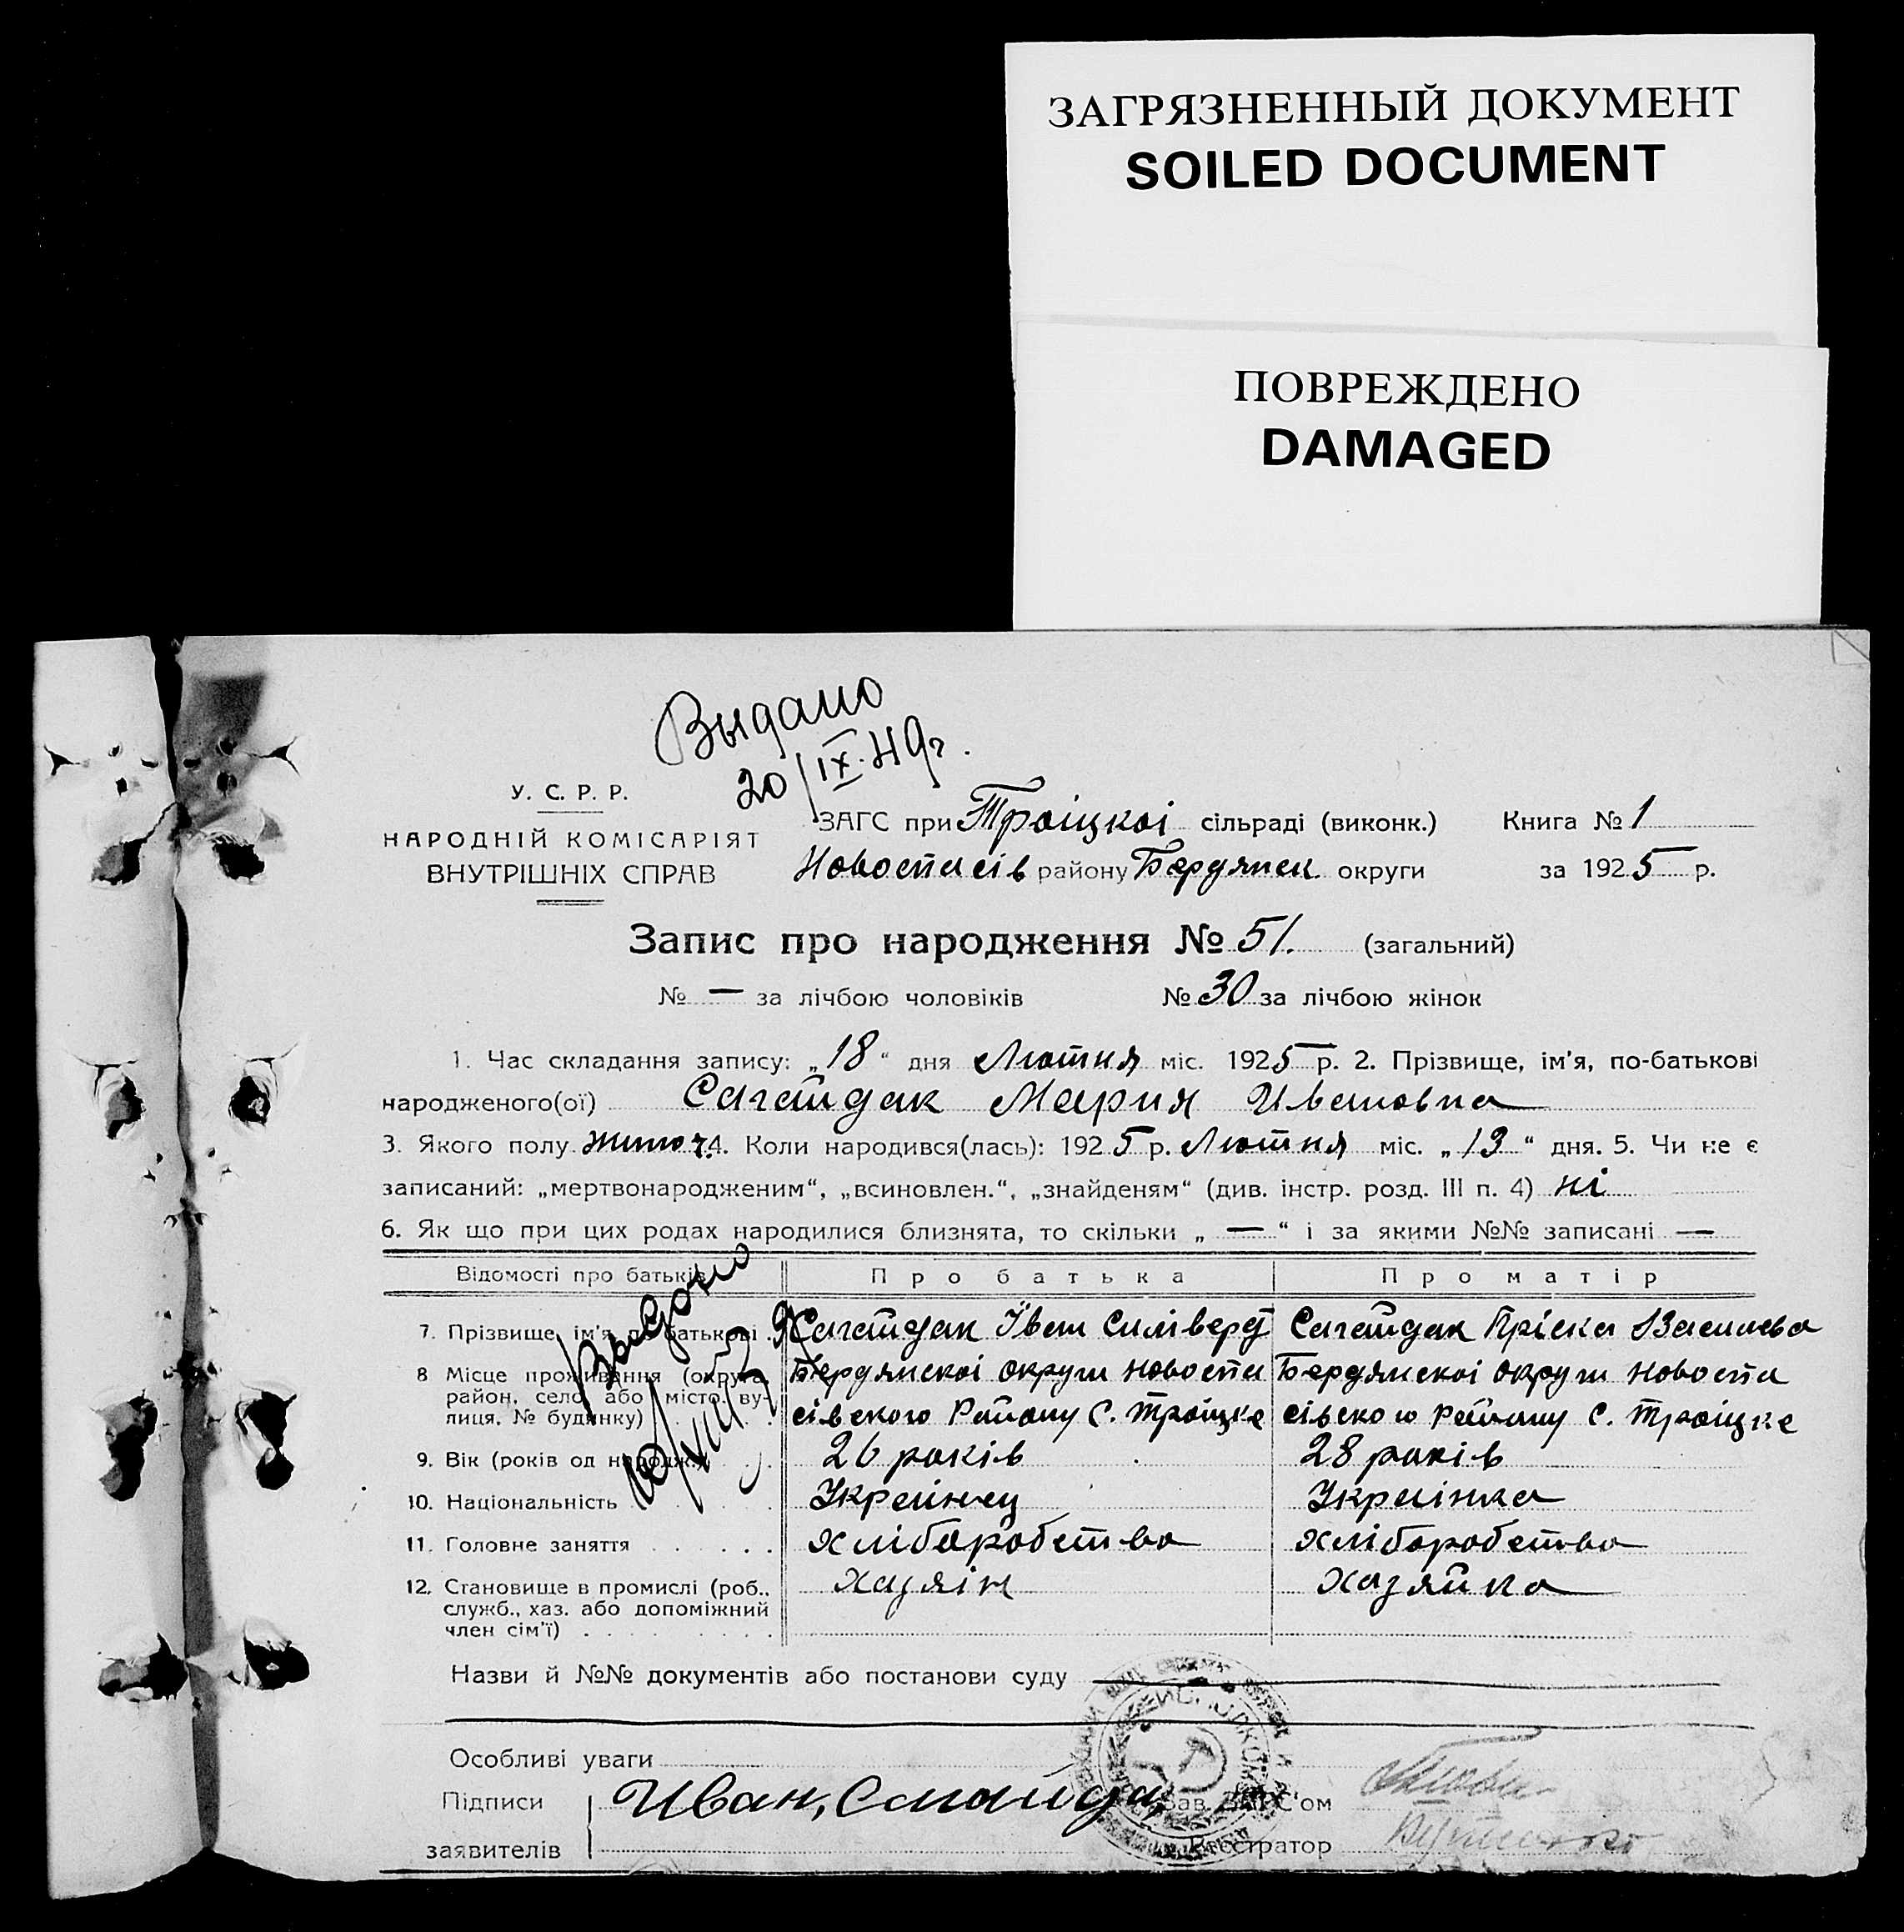 ЗАГРЯЗНЕННЫЙ ДОКУМЕНТ
SOILED DOCUMENT
ПОВРЕЖДЕНО
DAMAGED
Выдано
20/IX.49г.
У. С. Р. Р.
НАРОДНІЙ КОМІСАРІЯТ
ВНУТРІШНІХ СПРАВ
ЗАГС при Троіцкоі сільраді (виконк.) Книга № 1
Новоспасів району Бердянск округи за 1925 р.
Запис про народження № 51. (загальний)
№ — за лічбою чоловіків № 30 за лічбою жінок
1. Час складання запису: „18“ дня Лютня міс. 1925 р. 2. Прізвище, ім'я, по-батькові
народженого(ої) Сагайдак Мария Ивановна
3. Якого полу жиноч. 4. Коли народився(лась): 1925 р. Лютня міс. „13“ дня. 5. Чи не є
записаний: „мертвонародженим“, „всиновлен.“, „знайденям“ (див. інстр. розд. III п. 4) ні
6. Як що при цих родах народилися близнята, то скільки „ — “ і за якими №№ записані —
Відомості про батьків Про батька Про матір
Выдано
7. Прізвище, ім'я, по батькові Сагайдак Іван Силіверд Сагайдак Пріска Васильева
8 Місце проживання (округа, Бердянскоі округи Новоспа Бердянскоі округи Новоспа
район, село, або місто, ву- сівского Району С. Троіцке сівского Району С. Троіцке
лиця, № будинку)
9. Вік (років од народж.) 26 років 28 років
10. Національність Украінец Украінка
11. Головне заняття хліборобство хліборобство
12. Становище в промислі (роб., хазяін хазяйка
служб., хаз. або допоміжний
член сім'ї)
Назви й №№ документів або постанови суду
Особливі уваги
Підписи Иван, Сагайда Зав. ЗАГС'ом
заявителів Реєстратор